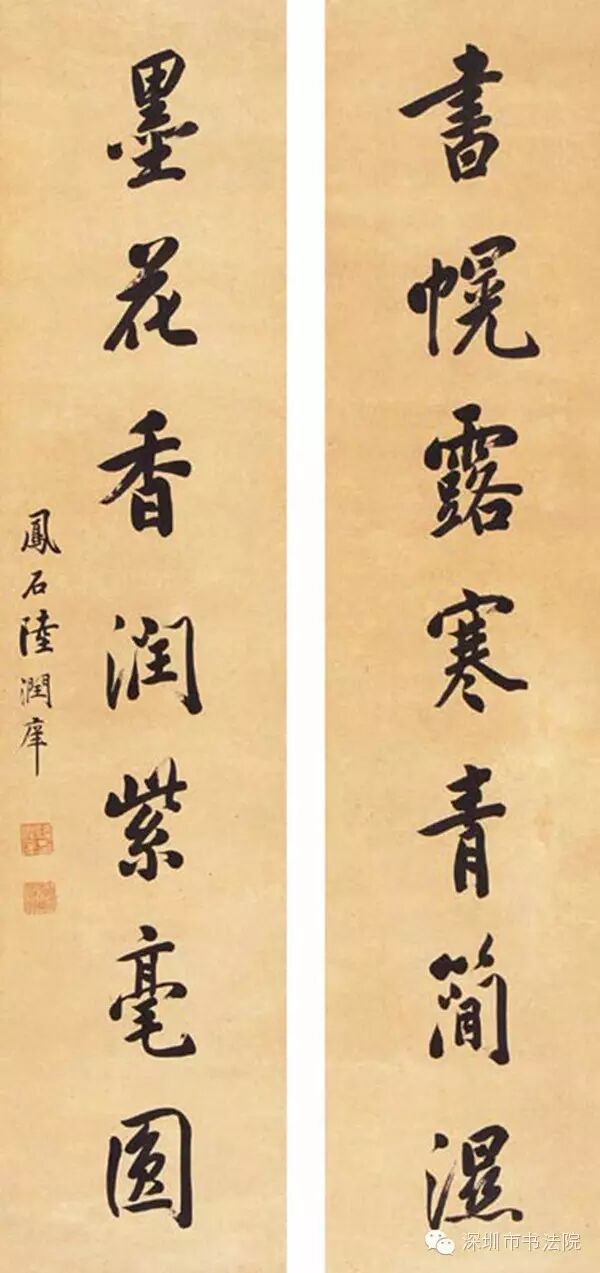 書幌露寒青簡濕
墨花香潤紫毫圓
鳳石陸潤庠
深圳市书法院